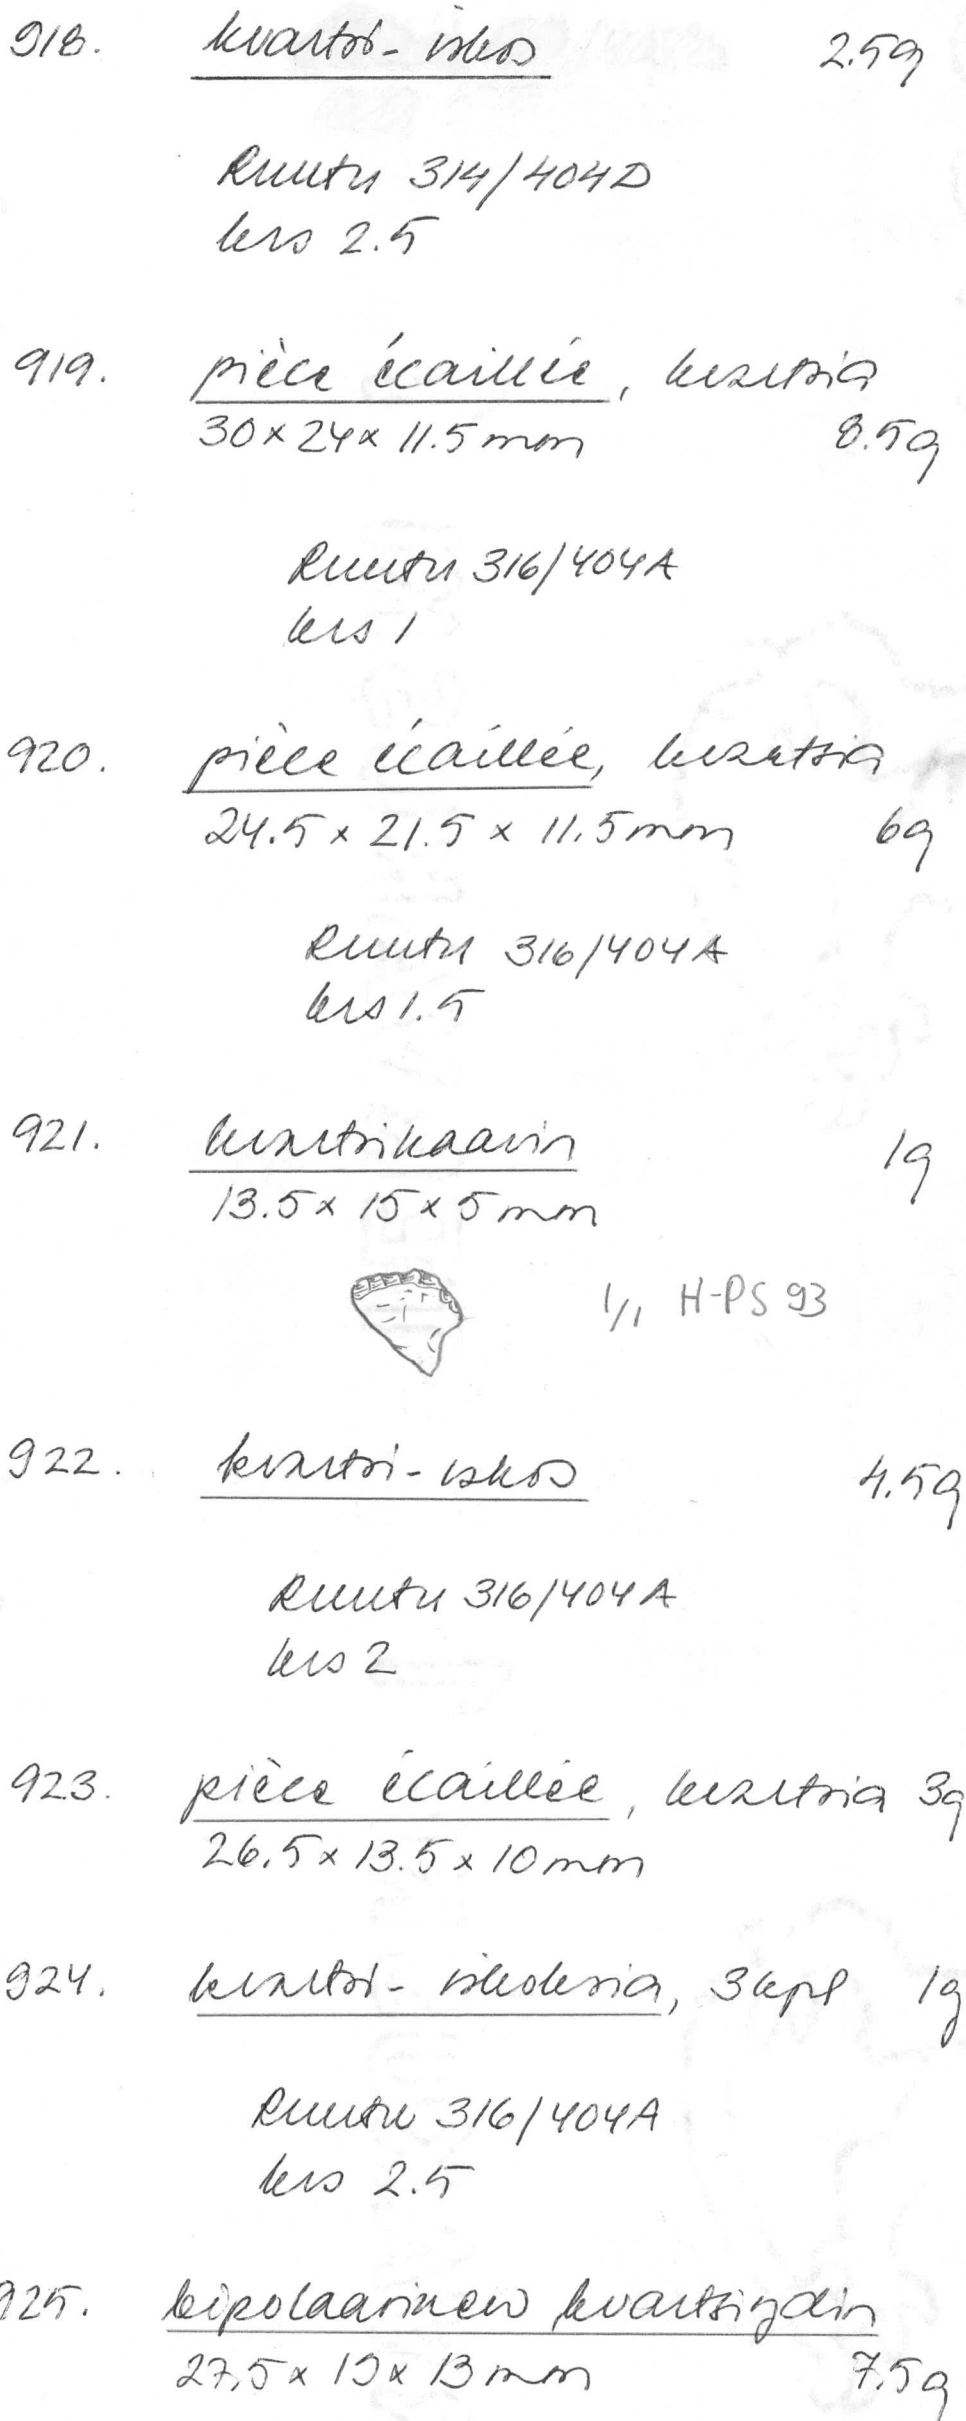 918. kvartsi-iskos 2.5g
Ruutu 314/404D
krs 2.5
919. pièce écaillée, kvartsia
30 x 24 x 11.5 mm 8.5g
Ruutu 316/404A
krs 1
920. pièce écaillée, kvartsia
24.5 x 21.5 x 11.5 mm 6g
Ruutu 316/404A
krs 1.5
921. kvartsikaavin 1g
13.5 x 15 x 5 mm
1/1 H-PS 93
922. kvartsi-iskos 4.5g
Ruutu 316/404A
krs 2
923. pièce écaillée, kvartsia 3g
26.5 x 13.5 x 10 mm
924. kvartsi-iskoksia, 3 kpl 1g
Ruutu 316/404A
krs 2.5
925. bipolaarinen kvartsiydin
27.5 x 19 x 13 mm 7.5g